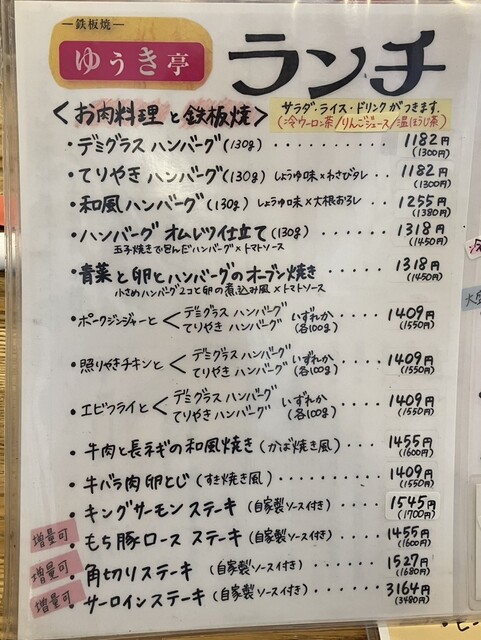 ―鉄板焼―
ゆうき亭
ランチ
<お肉料理と鉄板焼>
サラダ、ライス・ドリンクがつきます。
(冷ウーロン茶/りんごジュース/温ほうじ茶)
・デミグラス ハンバーグ(130g) ・・・・・ 1182円
(1300円)
・てりやき ハンバーグ(130g) しょうゆ味×わさびタレ ・・ 1182円
(1300円)
・和風ハンバーグ(130g) しょうゆ味×大根おろし ・・・ 1255円
(1380円)
・ハンバーグ オムレツ仕立て(130g) ・・・・ 1318円
(1450円)
玉子焼きで包んだハンバーグ×トマトソース
・青菜と卵とハンバーグのオーブン焼き ・・・・ 1318円
(1450円)
小さめハンバーグ2コと卵の煮込み風×トマトソース
・ポークジンジャーと<デミグラス ハンバーグ
てりやき ハンバーグ いずれか
(各100g) ・・・ 1409円
(1550円)
・照りやきチキンと<デミグラス ハンバーグ
てりやき ハンバーグ いずれか
(各100g) ・・・ 1409円
(1550円)
・エビフライと<デミグラス ハンバーグ
てりやき ハンバーグ いずれか
(各100g) ・・・・ 1409円
(1550円)
・牛肉と長ネギの和風焼き(かば焼き風) ・・・・ 1455円
(1600円)
・牛バラ肉卵とじ(すき焼き風) ・・・・・ 1409円
(1550円)
・キングサーモン ステーキ (自家製ソース付き) ・・・ 1545円
(1700円)
増量可
・もち豚ロース ステーキ (自家製ソース付き) ・・・ 1455円
(1600円)
増量可
・角切りステーキ (自家製ソース付き) ・・・・ 1527円
(1680円)
増量可
・サーロインステーキ (自家製ソース付き) ・・・・ 3164円
(3480円)